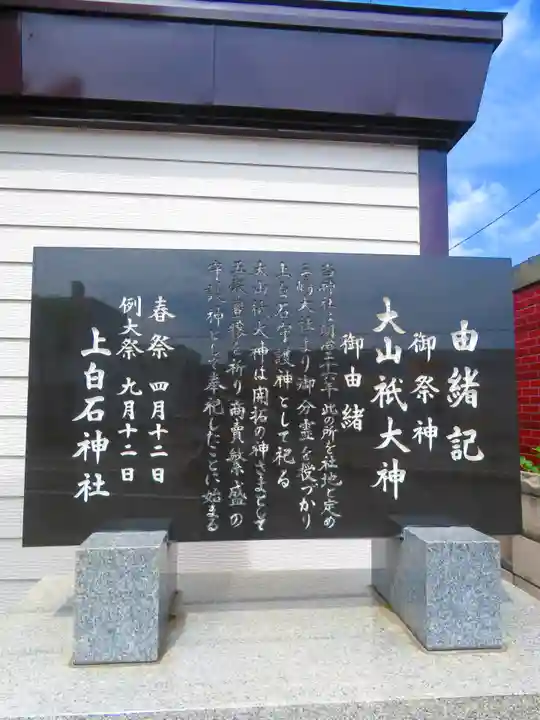 由緒記
御祭神
大山祇大神
御由緒
当神社は明治三十一年此の所を社地と定め
三嶋大社より御分霊を授づかり
上白石守護神として祀る
大山祇大神は開拓の神さまとして
五穀豊穣を祈り商賣繁盛の
守護神として奉祀したことに始まる
春祭 四月十二日
例大祭 九月十二日
上白石神社